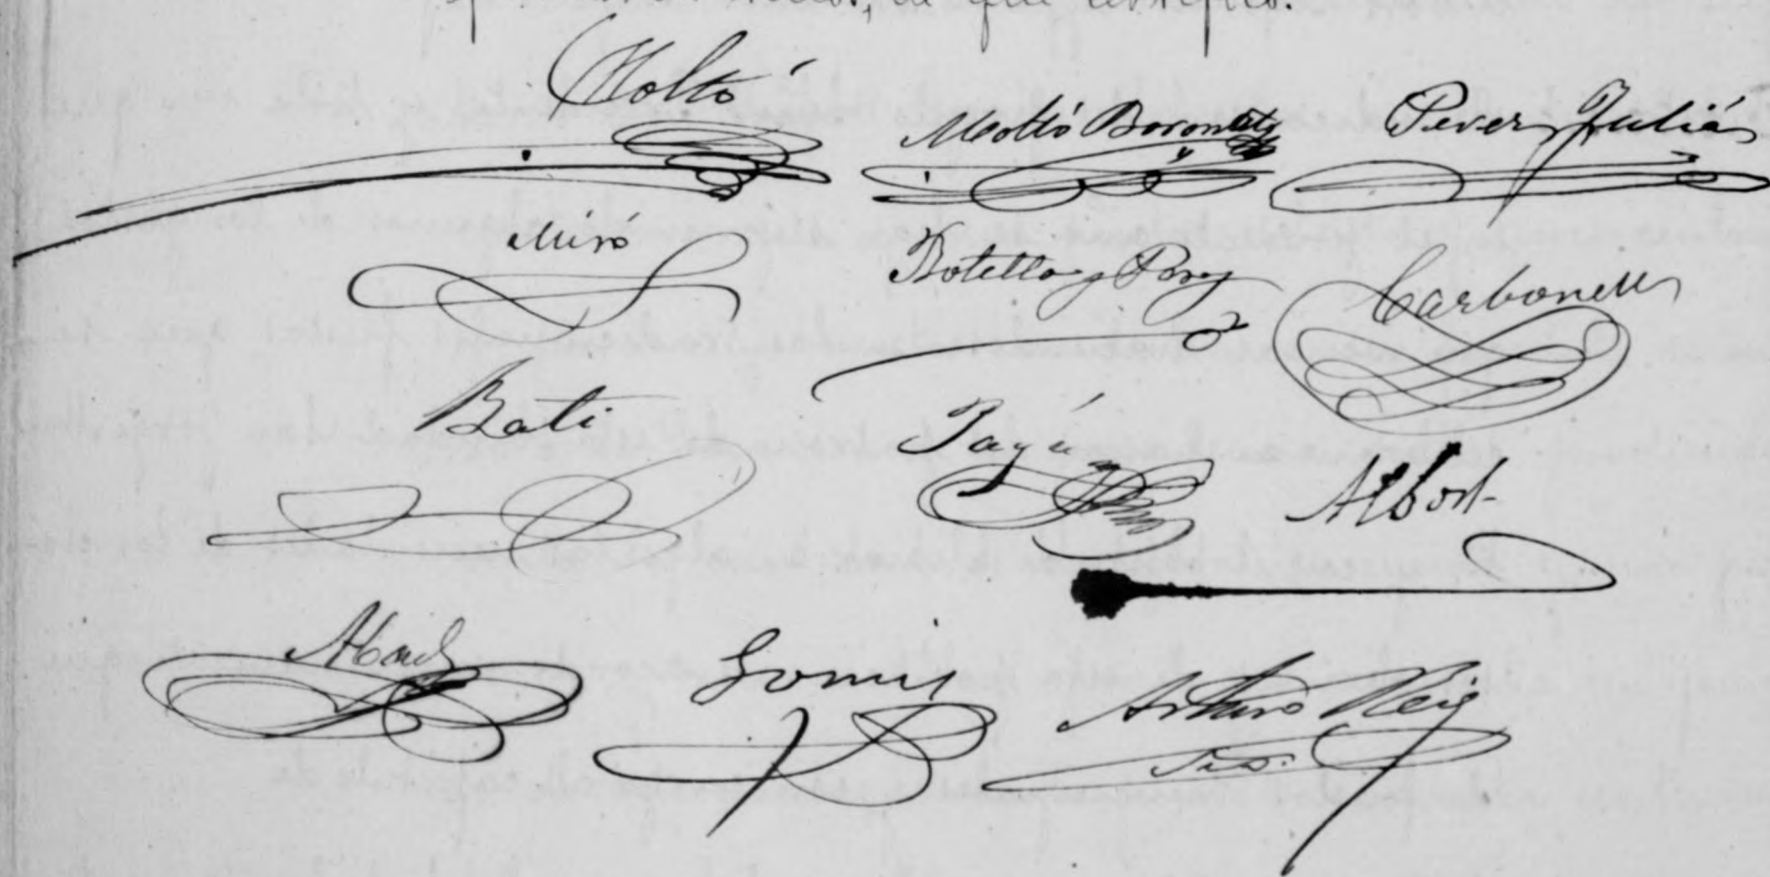 de que certifico.
Moltó
Moltó Boronat Perez Julián
Miró
Botella y Perez Carbonell
Bati
Payá
Albort
Abad
Gomis
Arturo Reig
Srio.